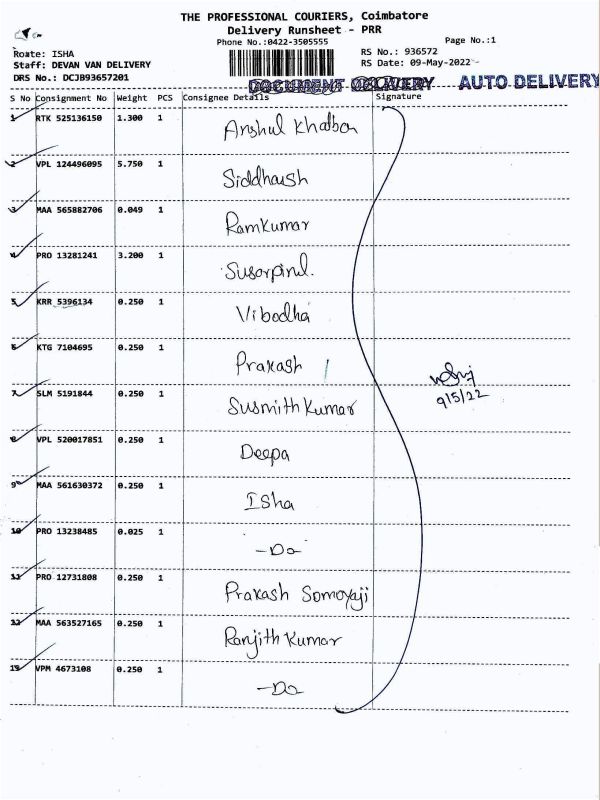 THE PROFESSIONAL COURIERS, Coimbatore
Delivery Runsheet - PRR
Phone No.:0422-3505555
Page No.:1
Route: ISHA
RS No.: 936572
Staff: DEVAN VAN DELIVERY
RS Date: 09-May-2022
DRS No.: DCJB93657201
DOCUMENT DELIVERY AUTO DELIVERY
S No Consignment No Weight PCS Consignee Details Signature
1 RTK 525136150 1.300 1 Anshul Khatbon
2 VPL 124496095 5.750 1 Siddhaush
3 MAA 565882706 0.049 1 Ramkumar
4 PRO 13281241 3.200 1
5 KRR 5396134 0.250 1 Vibodha
6 KTG 7104695 0.250 1 Prakash
7 SLM 5191844 0.250 1 Susmith Kumar
9/5/22
8 VPL 520017851 0.250 1 Deepa
9 MAA 561630372 0.250 1 Isha
10 PRO 13238485 0.025 1 -Do-
11 PRO 12731808 0.250 1 Prakash Somoyaji
12 MAA 563527165 0.250 1 Ranjith Kumar
13 VPM 4673108 0.250 1 -Do-